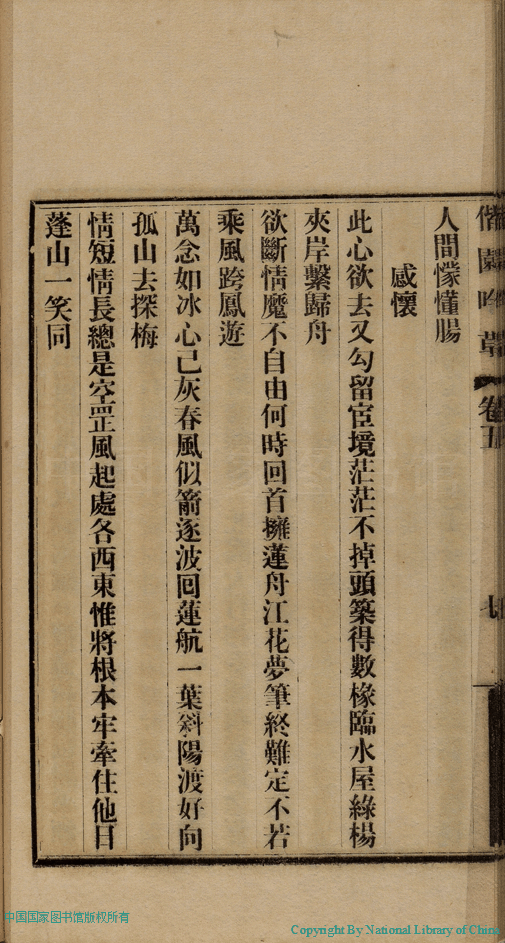 偕園吟草 卷五 七
人間懞懂腸
感懷
此心欲去又勾留宦境茫茫不掉頭築得數椽臨水屋綠楊
夾岸繫歸舟
欲斷情魔不自由何時回首擁蓮舟江花夢筆終難定不若
乘風跨鳳遊
萬念如冰心己灰春風似箭逐波回蓮航一葉斜陽渡好向
孤山去探梅
情短情長總是空罡風起處各西東惟將根本牢牽住他日
蓬山一笑同
中国国家图书馆版权所有
Copyright By National Library of China